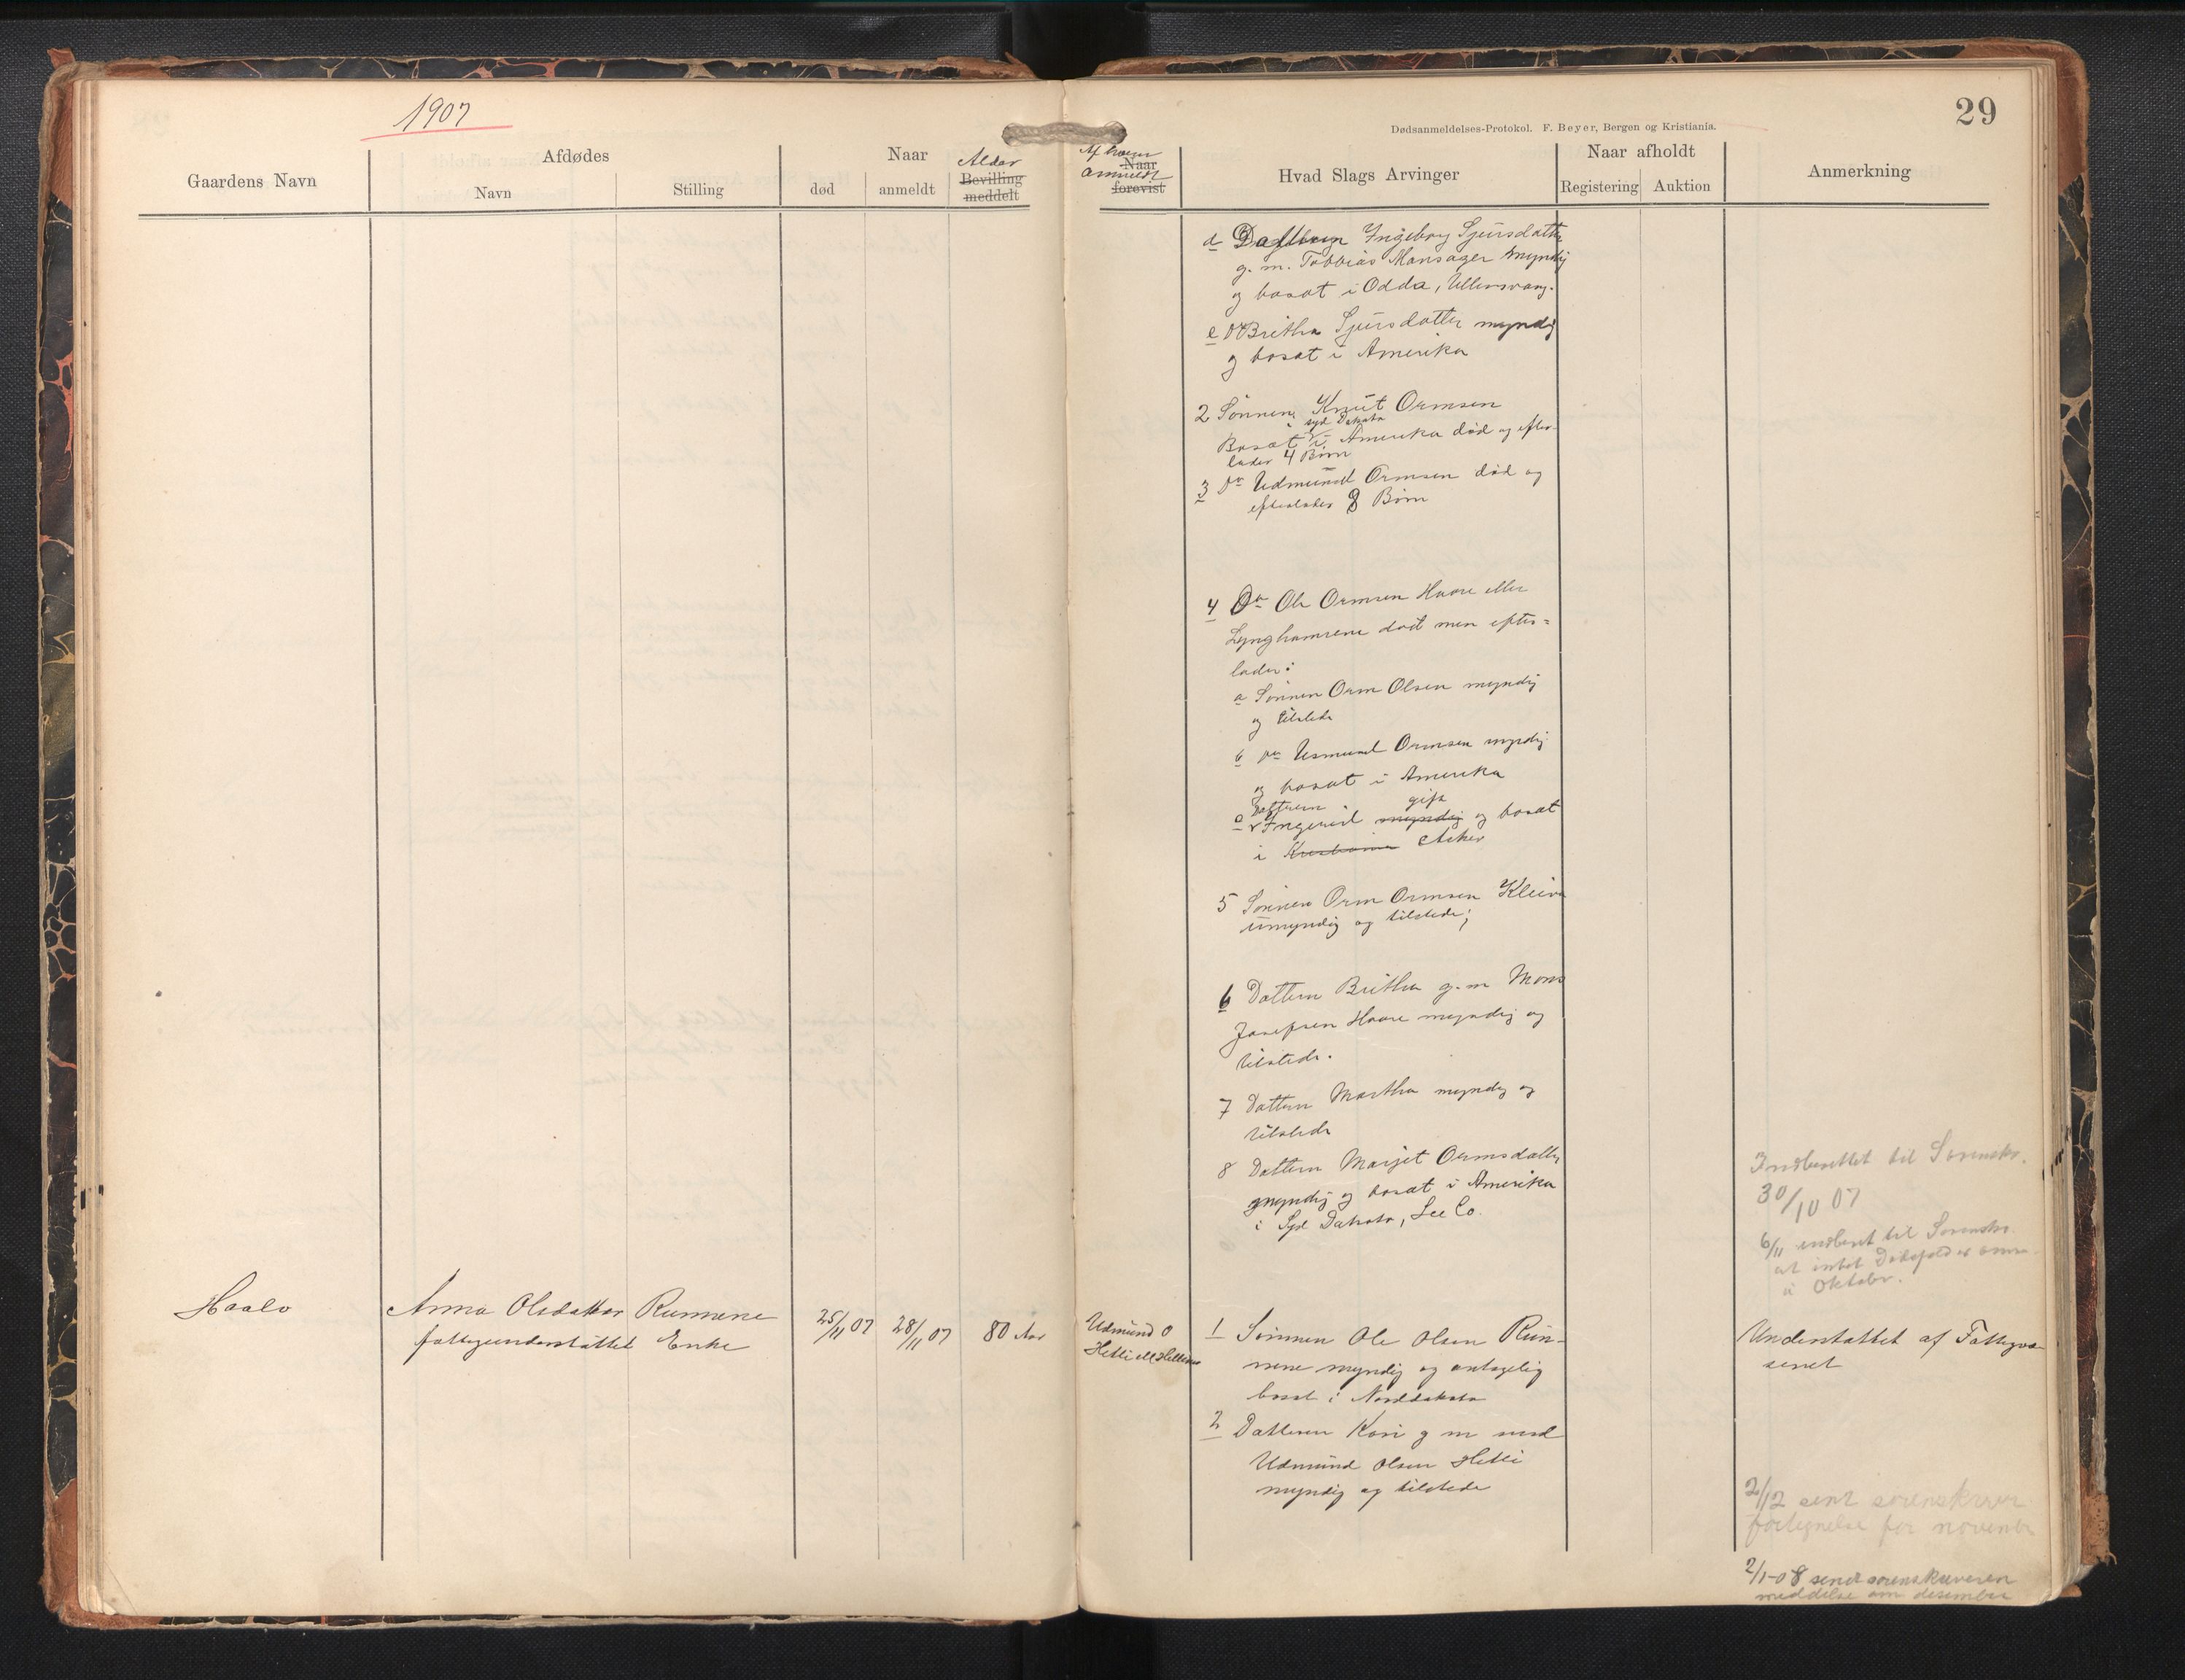 1907
29
Dødsanmeldelses-Protokol. F. Beyer, Bergen og Kristiania.
Gaardens Navn
Afdødes
Navn
Stilling
Naar
død
anmeldt
Alder
Bevilling
meddelt
Af hvem
anmeldt
Naar
forevist
Hvad Slags Arvinger
Naar afholdt
Registering
Auktion
Anmerkning
d Datteren Ingeborg Sjursdatter
g. m. Tobbias Mansager myndig
og bosat i Odda, Ullensvang.
e Do Britha Sjursdatter myndig
og bosat i Amerika
2 Sönnen Knut Ormsen
i syd Dakota
Bosat i Amerika död og efter-
lader 4 Börn
3 Do Udmund Ormsen död og
efterlader 8 Börn
4 Do Ole Ormsen Haare eller
Lynghamrene död men efter=
lader:
a Sönnen Orm Olsen myndig
og tilstede
b Do Usmund Ormsen myndig
og bosat i Amerika
Datteren gift
c Ingerid myndig og bosat
i Kristiania Aker
5 Sönnen Orm Ormsen Kleiva
umyndig og tilstede;
6 Dattern Britha g. m Mons
Josefsen Haare myndig og
tilstede.
7 Dattern Martha myndig og
tilstede
8 Dattern Marjet Ormsdatter
myndig og bosat i Amerika
i Syd Dakota, Lee Co.
Indberettet til Sorenskr.
30/10 07
6/11 indberet til Sorenskr.
at intet Dödsfald er anm.
i Oktober.
Haalo
Anna Olsdatter Runnene
fattigunderstöttet Enke
25/11 07
28/11 07
80 Aar
Udmund O
Hetli ell
1 Sönnen Ole Olsen Run-
nene myndig og antagelig
bosat i Norddakota
2 Datteren Kari g m med
Udmund Olsen Hetli
myndig og tilstede
Understøttet af Fattigvæ
senet
2/12 sent sorenskriver
fortegnelse for novembr
2/1-08 sendt sorenskriveren
meddelse om desember